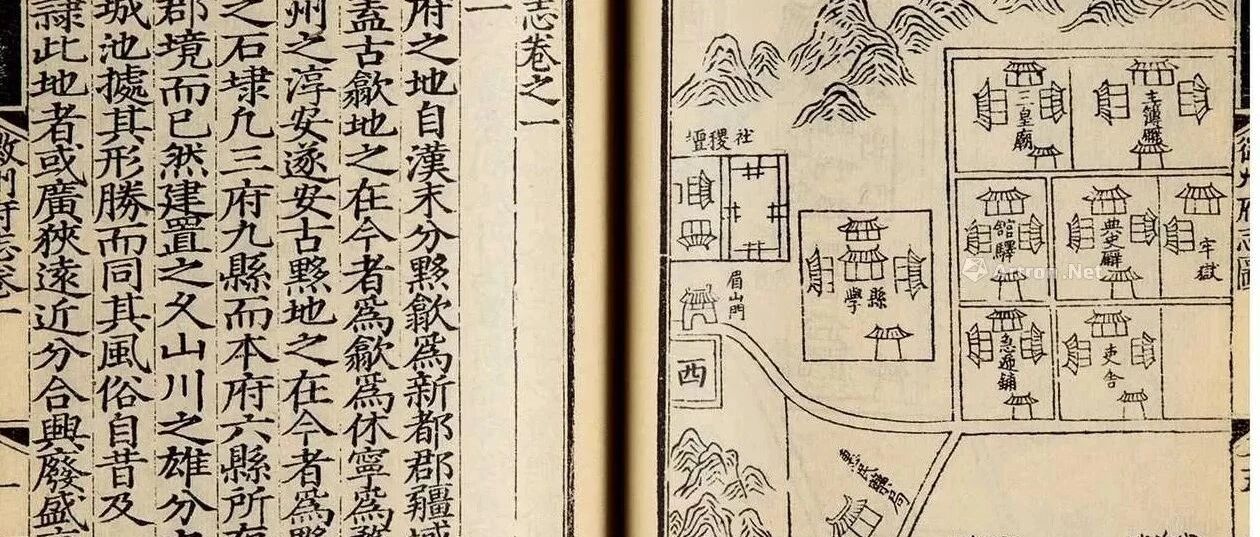 徽州府志圖
主簿廨
三皇廟
牢獄
典史廨
館驛
吏舍
急遞鋪
縣學
社稷壇
眉山門
西
志卷之一
一
府之地自漢末分黟歙爲新都郡疆域
蓋古歙地之在今者爲歙爲休寧爲
州之淳安遂安古黟地之在今者爲黟
之石埭凡三府九縣而本府六縣所有
郡境而已然建置之久山川之雄分
城池據其形勝而同其風俗自昔及
隷此地者或廣狹遠近分合興廢盛
徽州府志卷一
一
Artron.Net